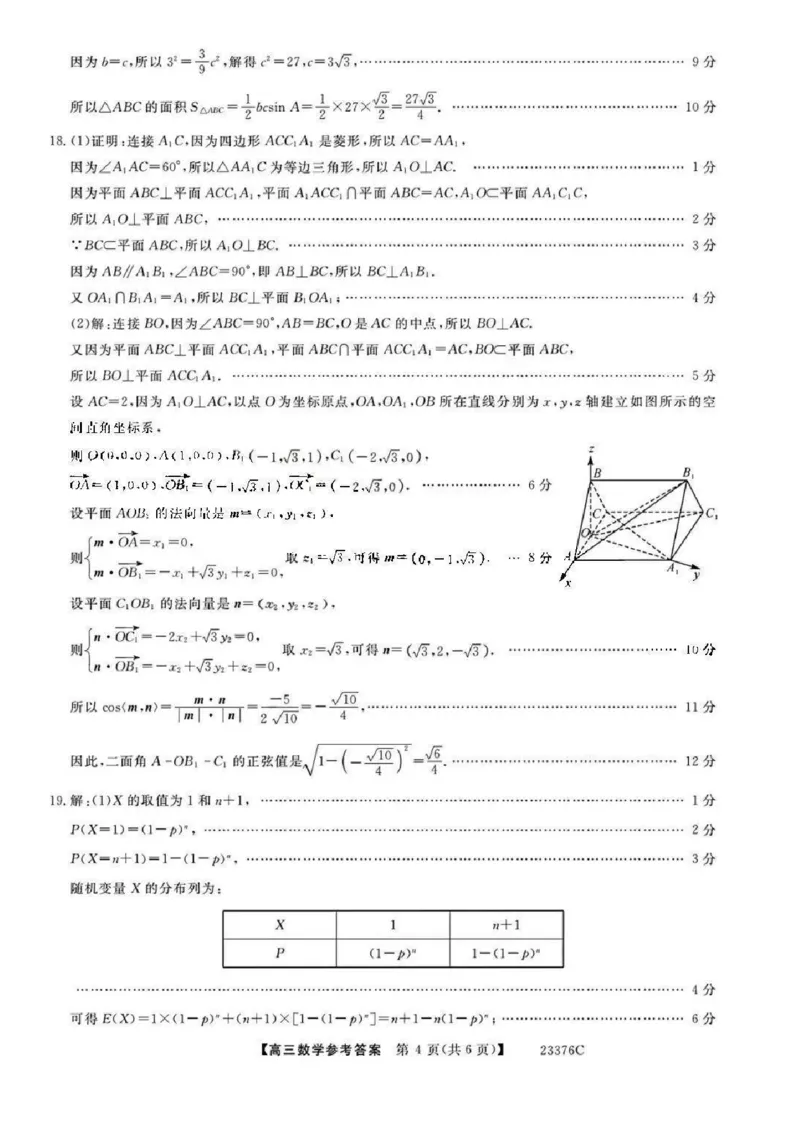 因为 b=c,所以 3²=3/9c²,解得 c²=27,c=3√3,…… 9 分
所以△ABC 的面积 S△ABC=1/2bcsin A=1/2×27×√3/2=27√3/4. …… 10 分
18. (1)证明:连接 A₁C,因为四边形 ACC₁A₁ 是菱形,所以 AC=AA₁,
因为∠A₁AC=60°,所以△AA₁C 为等边三角形,所以 A₁O⊥AC. …… 1 分
因为平面 ABC⊥平面 ACC₁A₁,平面 A₁ACC₁∩平面 ABC=AC,A₁O⊂平面 AA₁C₁C,
所以 A₁O⊥平面 ABC, …… 2 分
∵BC⊂平面 ABC,所以 A₁O⊥BC. …… 3 分
因为 AB∥A₁B₁,∠ABC=90°,即 AB⊥BC,所以 BC⊥A₁B₁.
又 OA₁∩B₁A₁=A₁,所以 BC⊥平面 B₁OA₁; …… 4 分
(2)解:连接 BO,因为∠ABC=90°,AB=BC,O 是 AC 的中点,所以 BO⊥AC.
又因为平面 ABC⊥平面 ACC₁A₁,平面 ABC∩平面 ACC₁A₁=AC,BO⊂平面 ABC,
所以 BO⊥平面 ACC₁A₁. …… 5 分
设 AC=2,因为 A₁O⊥AC,以点 O 为坐标原点,OA,OA₁,OB 所在直线分别为 x,y,z 轴建立如图所示的空
间直角坐标系,
则 O(0,0,0),A(1,0,0),B₁(-1,√3,1),C₁(-2,√3,0),
OA=(1,0,0),OB₁=(-1,√3,1),OC₁=(-2,√3,0). …… 6 分
设平面 AOB₁ 的法向量是 m=(x₁,y₁,z₁),
则{m·OA=x₁=0, m·OB₁=-x₁+√3y₁+z₁=0, 取 z₁=√3,可得 m=(0,-1,√3). … 8 分
z
B
B₁
C
C₁
O
A
A₁
x
y
设平面 C₁OB₁ 的法向量是 n=(x₂,y₂,z₂),
则{n·OC₁=-2x₂+√3y₂=0, n·OB₁=-x₂+√3y₂+z₂=0, 取 x₂=√3,可得 n=(√3,2,-√3). …… 10 分
所以 cos⟨m,n⟩=m·n/|m|·|n|=-5/2√10=-√10/4,…… 11 分
因此,二面角 A-OB₁-C₁ 的正弦值是√(1-(-√10/4)²)=√6/4. …… 12 分
19. 解:(1)X 的取值为 1 和 n+1, …… 1 分
P(X=1)=(1-p)ⁿ, …… 2 分
P(X=n+1)=1-(1-p)ⁿ, …… 3 分
随机变量 X 的分布列为:
X 1 n+1
P (1-p)ⁿ 1-(1-p)ⁿ
…… 4 分
可得 E(X)=1×(1-p)ⁿ+(n+1)×[1-(1-p)ⁿ]=n+1-n(1-p)ⁿ; …… 6 分
【高三数学参考答案 第 4 页(共 6 页)】 23376C